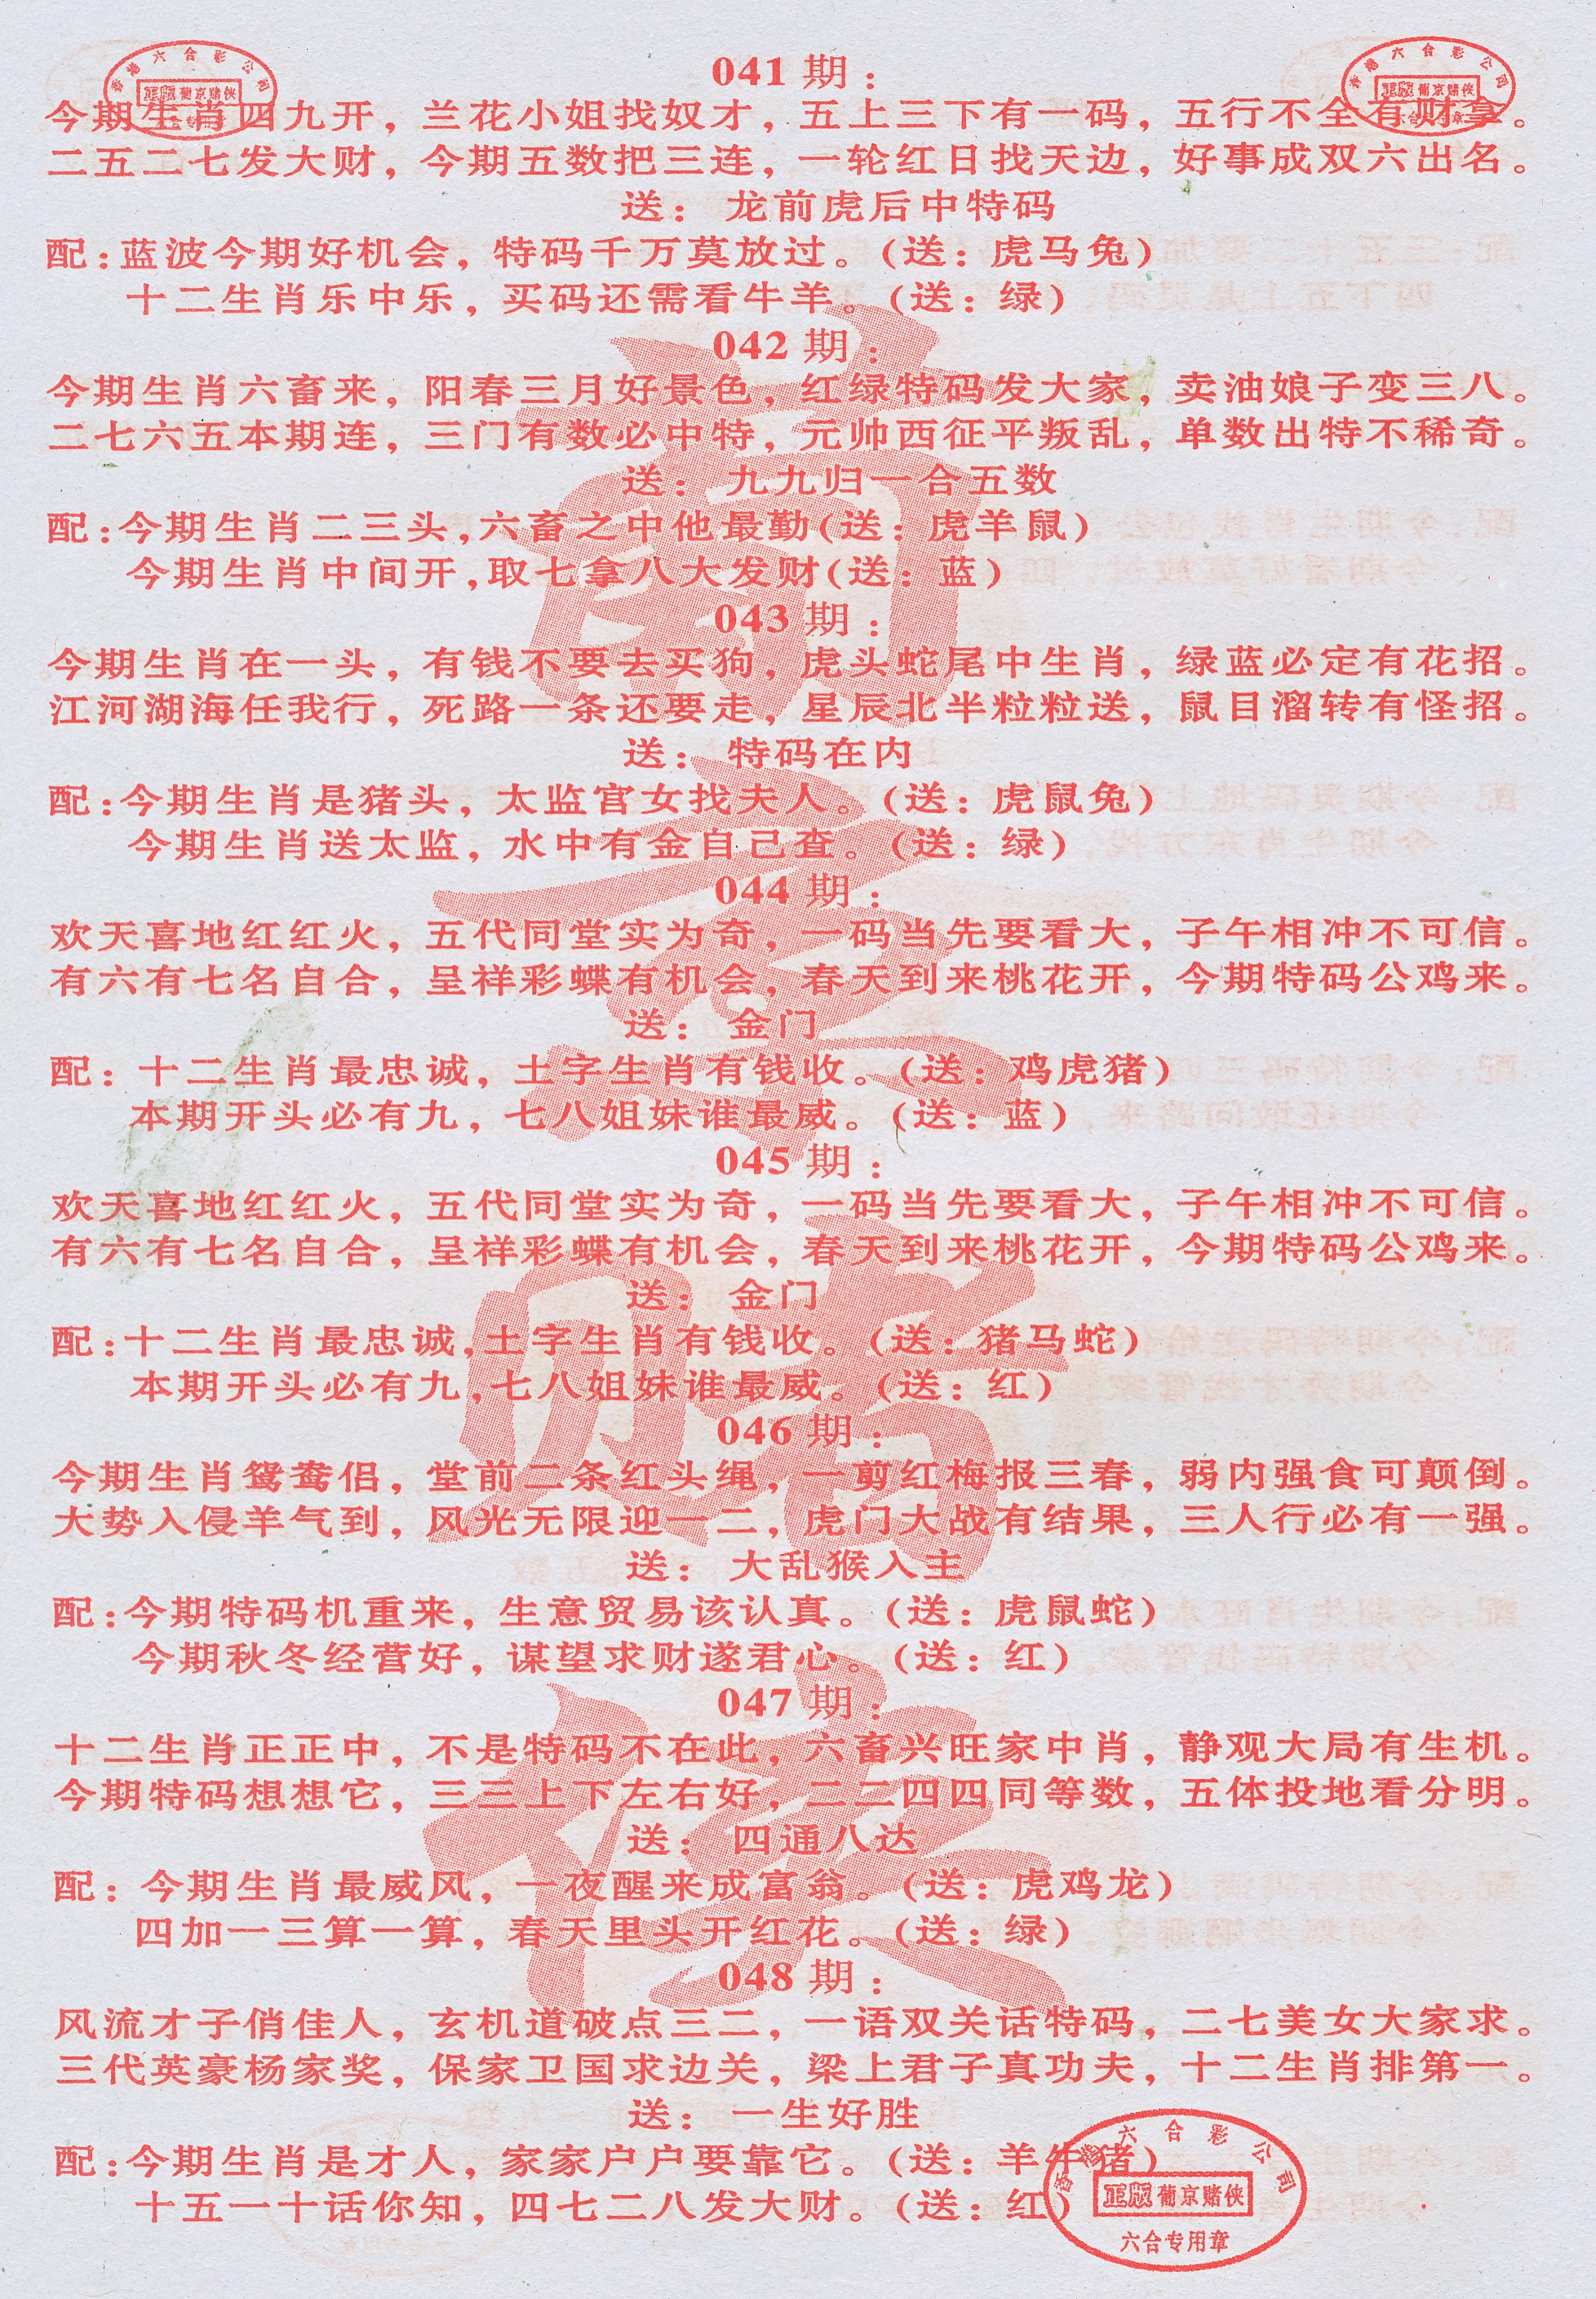 香港六合彩公司
正版葡京赌侠
六合专用章
香港六合彩公司
正版葡京赌侠
六合专用章
葡京赌侠
041期：
今期生肖四九开，兰花小姐找奴才，五上三下有一码，五行不全有财拿。
二五二七发大财，今期五数把三连，一轮红日找天边，好事成双六出名。
送： 龙前虎后中特码
配：蓝波今期好机会，特码千万莫放过。（送：虎马兔）
十二生肖乐中乐，买码还需看牛羊。（送：绿）
042期：
今期生肖六畜来，阳春三月好景色，红绿特码发大家，卖油娘子变三八。
二七六五本期连，三门有数必中特，元帅西征平叛乱，单数出特不稀奇。
送： 九九归一合五数
配：今期生肖二三头，六畜之中他最勤（送：虎羊鼠）
今期生肖中间开，取七拿八大发财（送：蓝）
043期：
今期生肖在一头，有钱不要去买狗，虎头蛇尾中生肖，绿蓝必定有花招。
江河湖海任我行，死路一条还要走，星辰北半粒粒送，鼠目溜转有怪招。
送： 特码在内
配：今期生肖是猪头，太监宫女找夫人。（送：虎鼠兔）
今期生肖送太监，水中有金自己查。（送：绿）
044期：
欢天喜地红红火，五代同堂实为奇，一码当先要看大，子午相冲不可信。
有六有七名自合，呈祥彩蝶有机会，春天到来桃花开，今期特码公鸡来。
送： 金门
配：十二生肖最忠诚，土字生肖有钱收。（送：鸡虎猪）
本期开头必有九，七八姐妹谁最威。（送：蓝）
045期：
欢天喜地红红火，五代同堂实为奇，一码当先要看大，子午相冲不可信。
有六有七名自合，呈祥彩蝶有机会，春天到来桃花开，今期特码公鸡来。
送： 金门
配：十二生肖最忠诚，土字生肖有钱收。（送：猪马蛇）
本期开头必有九，七八姐妹谁最威。（送：红）
046期：
今期生肖鸳鸯侣，堂前二条红头绳，一剪红梅报三春，弱内强食可颠倒。
大势入侵羊气到，风光无限迎一二，虎门大战有结果，三人行必有一强。
送： 大乱猴入主
配：今期特码机重来，生意贸易该认真。（送：虎鼠蛇）
今期秋冬经营好，谋望求财遂君心。（送：红）
047期：
十二生肖正正中，不是特码不在此，六畜兴旺家中肖，静观大局有生机。
今期特码想想它，三三上下左右好，二二四四同等数，五体投地看分明。
送： 四通八达
配：今期生肖最威风，一夜醒来成富翁。（送：虎鸡龙）
四加一三算一算，春天里头开红花。（送：绿）
048期：
风流才子俏佳人，玄机道破点三二，一语双关话特码，二七美女大家求。
三代英豪杨家奖，保家卫国求边关，梁上君子真功夫，十二生肖排第一。
送： 一生好胜
配：今期生肖是才人，家家户户要靠它。（送：羊牛猪）
十五一十话你知，四七二八发大财。（送：红）
香港六合彩公司
正版葡京赌侠
六合专用章